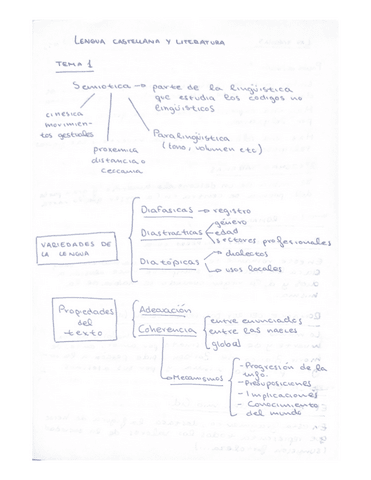 LENGUA CASTELLANA Y LITERATURA
TEMA 1
Semiótica → parte de la lingüística
que estudia los códigos no
lingüísticos
cinésica
movimien-
tos gestuales
proxémica
distancia o
cercanía
Paralingüística
(tono, volumen etc)
VARIEDADES DE
LA LENGUA
Diafásicas → registro
Diastrácticas
género
edad
sectores profesionales
Diatópicas
dialectos
usos locales
Propiedades
del
texto
Adecuación
Coherencia
entre enunciados
entre las partes
global
Mecanismos
- Progresión de la
info.
- Presuposiciones
- Implicaciones
- Conocimiento
del mundo